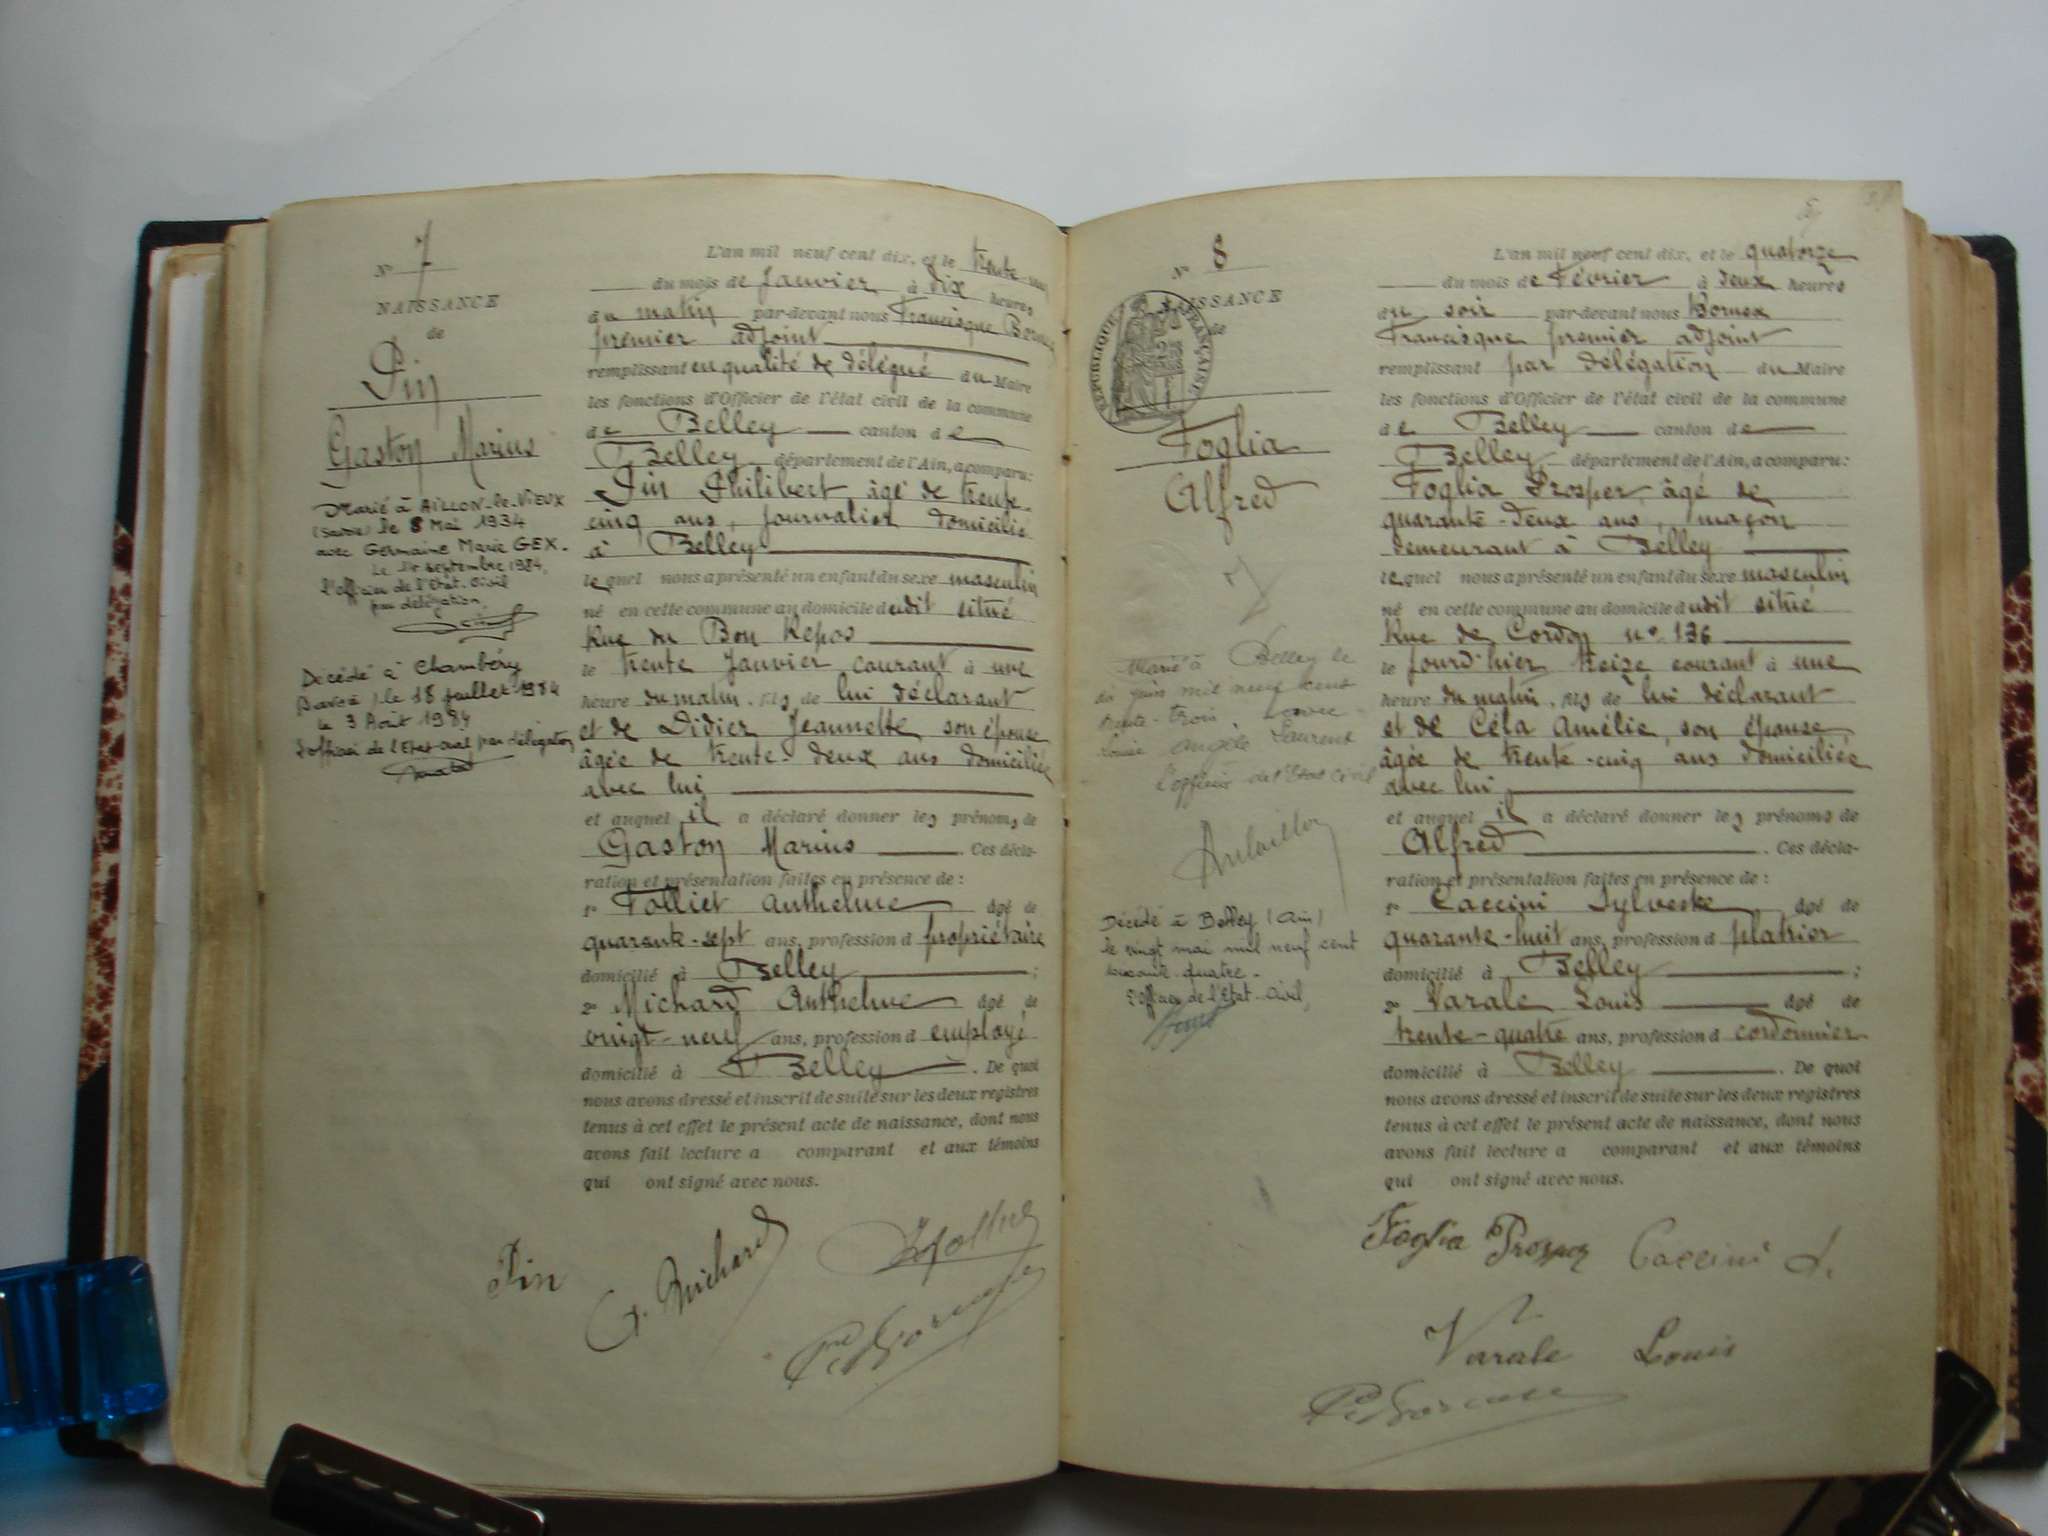 N° 7
NAISSANCE
de
Pin
Gaston Marius
Marié à AILLON-le-VIEUX
(Savoie) le 8 Mai 1934
avec Germaine Marie GEX.
Le 14 septembre 1984,
l'officier de l'Etat-Civil
par délégation,
Décédé à Chambéry
(Savoie) le 18 juillet 1984
le 3 Août 1984
L'officier de l'Etat-civil par délégation
L'an mil neuf cent dix, et le trente
du mois de Janvier à dix heures
du matin par-devant nous Francisque
premier adjoint
remplissant en qualité de délégué du Maire
les fonctions d'Officier de l'état civil de la commune
de Belley canton de
Belley département de l'Ain, a comparu:
Pin Philibert, âgé de trente-
cinq ans, journalier domicilié
à Belley
lequel nous a présenté un enfant du sexe masculin
né en cette commune au domicile dudit situé
Rue du Bon Repos
le trente Janvier courant à une
heure du matin, fils de lui déclarant
et de Didier Jeannette son épouse
âgée de trente-deux ans domiciliée
avec lui
et auquel il a déclaré donner les prénoms de
Gaston Marius. Ces décla-
ration et présentation faites en présence de:
1° Folliet Anthelme âgé de
quarante-sept ans, profession d propriétaire
domicilié à Belley;
2° Michard Anthelme âgé de
vingt-neuf ans, profession d employé
domicilié à Belley. De quoi
nous avons dressé et inscrit de suite sur les deux registres
tenus à cet effet le présent acte de naissance, dont nous
avons fait lecture a comparant et aux témoins
qui ont signé avec nous.
Pin A. Michard
N° 8
NAISSANCE
de
RÉPUBLIQUE FRANÇAISE
Foglia
Alfred
Marié à Belley le
dix juin mil neuf cent
trente-trois, avec
Louise Angèle Laurent
L'officier de l'Etat Civil
Décédé à Belley (Ain)
le vingt mai mil neuf cent
soixante-quatre.
L'Officier de l'Etat-Civil,
L'an mil neuf cent dix, et le quatorze
du mois de Février à deux heures
du soir par-devant nous Bornex
Francisque premier adjoint
remplissant par délégation du Maire
les fonctions d'Officier de l'état civil de la commune
de Belley canton de
Belley département de l'Ain, a comparu:
Foglia Prosper, âgé de
quarante-deux ans, maçon
demeurant à Belley
lequel nous a présenté un enfant du sexe masculin
né en cette commune au domicile dudit situé
Rue de Cordon n° 136
le jourd'hier treize courant à une
heure du matin, fils de lui déclarant
et de Céla Amélie, son épouse,
âgée de trente-cinq ans domiciliée
avec lui
et auquel il a déclaré donner les prénoms de
Alfred. Ces décla-
ration et présentation faites en présence de:
1° Caccini Sylvestre, âgé de
quarante-huit ans, profession d platrier
domicilié à Belley;
2° Varale Louis âgé de
trente-quatre ans, profession d cordonnier
domicilié à Belley. De quoi
nous avons dressé et inscrit de suite sur les deux registres
tenus à cet effet le présent acte de naissance, dont nous
avons fait lecture a comparant et aux témoins
qui ont signé avec nous.
Foglia Prosper Caccini S.
Varale Louis